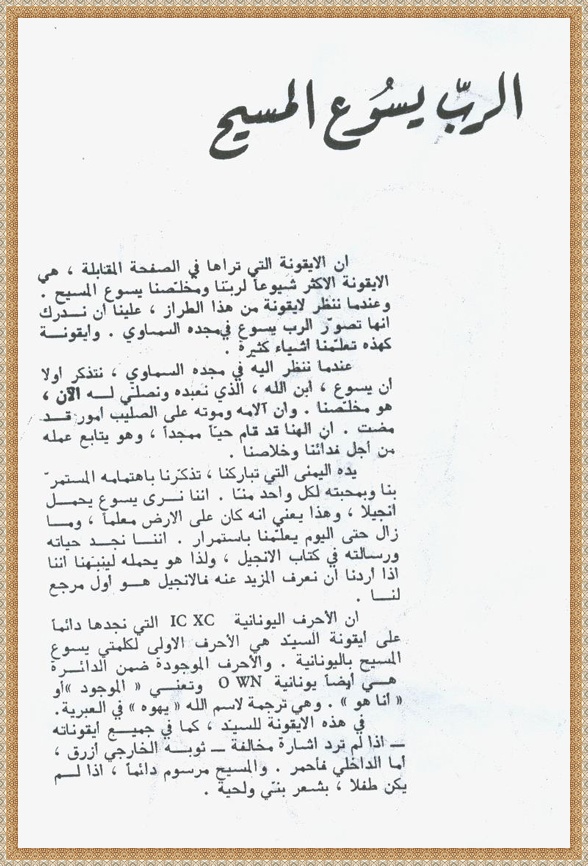 الربّ يسُوع المسيح
ان الايقونة التي تراها في الصفحة المقابلة ، هي
الايقونة الاكثر شيوعاً لربّنا ومخلّصنا يسوع المسيح .
وعندما ننظر لايقونة من هذا الطراز ، علينا ان نــدرك
انها تصوّر الرب يسوع في مجده السماوي . وايقونــة
كهذه تعلّمنا اشياء كثيرة .
عندما ننظر اليه في مجده السماوي ، نتذكر اولا
ان يسوع ، ابن الله ، الذي نعبده ونصلي لــه الآن ،
هو مخلّصنا . وان آلامه وموته على الصليب امور قــد
مضت . ان الهنا قد قام حيّاً ممجداً ، وهو يتابع عمله
من اجل فدائنا وخلاصنا .
يده اليمنى التي تباركنا ، تذكّرنا باهتمامه المستمرّ
بنا وبمحبته لكل واحد منّا . اننا نــرى يسوع يحمــل
انجيلا ، وهذا يعني انه كان على الارض معلماً ، ومــا
زال حتى اليوم يعلّمنا باستمرار . اننــا نجــد حياته
ورسالته في كتاب الانجيل ، ولذا هو يحمله لينبّهنا اننا
اذا اردنا ان نعرف المزيد عنه فالانجيل هــو اول مرجع
لنــا .
ان الأحرف اليونانية IC XC التي نجدها دائماً
على ايقونة السيّد هي الأحرف الاولى لكلمتي يسوع
المسيح باليونانية . والأحرف الموجودة ضمن الدائــرة
هــي أيضاً يونانية O WN وتعنــي « الموجود »أو
« أنا هو » . وهي ترجمة لاسم الله « يهوه » في العبرية.
في هذه الايقونة للسيّد ، كما في جميــع ايقوناته
ــ اذا لم ترد اشارة مخالفة ــ ثوبــه الخارجي أزرق ،
اما الداخلي فأحمر . والمسيح مرسوم دائماً ، اذا لــم
يكن طفلا ، بشعر بنّي ولحية .